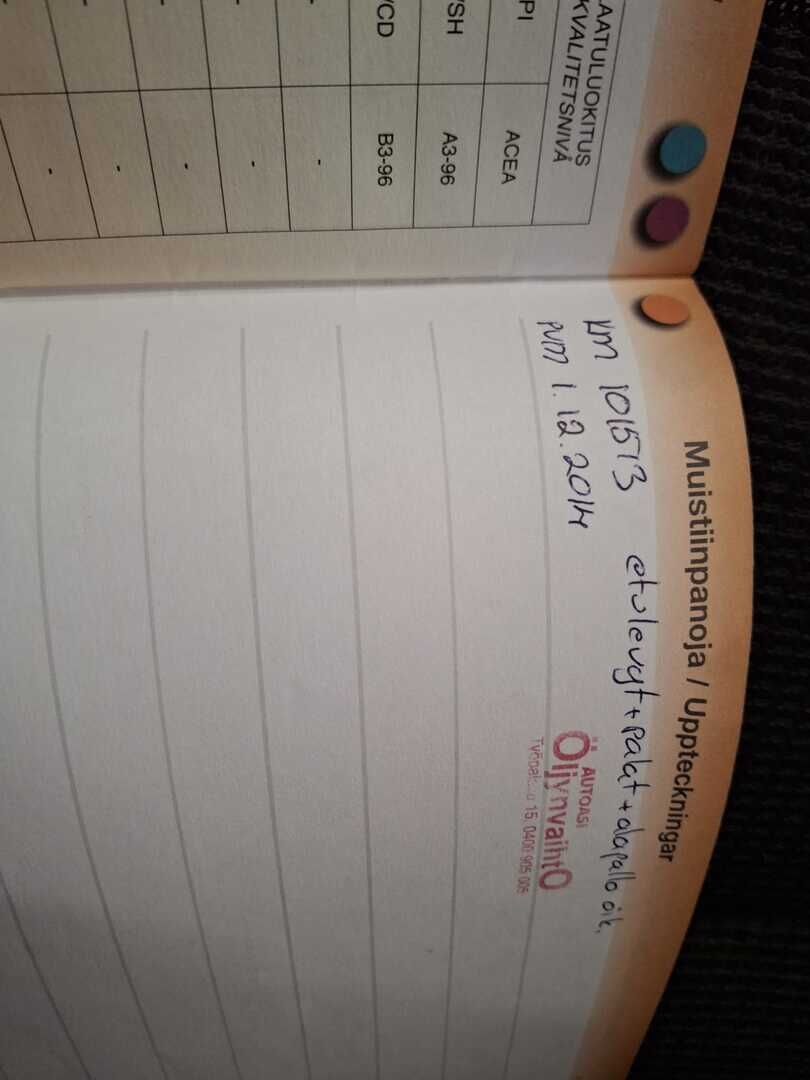 LAATULUOKITUS
KVALITETSNIVÅ
ACEA
A3-96
B3-96
-
-
-
-
-
Muistiinpanoja / Uppteckningar
KM 101573 etulevyt + palat + alapallo oik.
PVM 1.12.2014
AUTOASI
Öljynvaihto
15, 0400 905 005